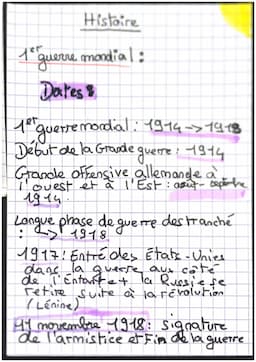 Histoire
1er guerre mondial :
Dates :
1er guerre mondial : 1914 -> 1918
Début de la Grande guerre : 1914
Grande offensive allemande à
l'ouest et à l'Est : août - septembre
1914.
Longue phase de guerre des tranché
: -> 1918
1917 : Entré des États-Unies
dans la guerre aux côté
de l'Entente + la Russie se
retire suite à la révolution
(Lénine)
11 novembre 1918 : signature
de l'armistice et Fin de la guerre